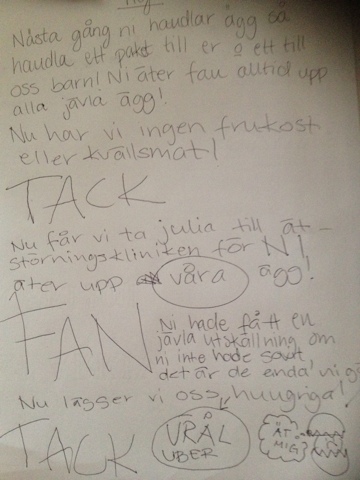 Hej
Nästa gång ni handlar ägg så
handla ett paket till er o ett till
oss barn! Ni äter fan alltid upp
alla jävla ägg!
Nu har vi ingen frukost
eller kvällsmat!
TACK
Nu får vi ta julia till ät-
störningskliniken för NI
äter upp våra ägg!
FAN
Ni hade fått en
jävla utskällning om
ni inte hade sovit,
det är de enda ni
Nu lägger vi oss huugriga!
TACK
VRÅL
UBER
ÄT
MIG